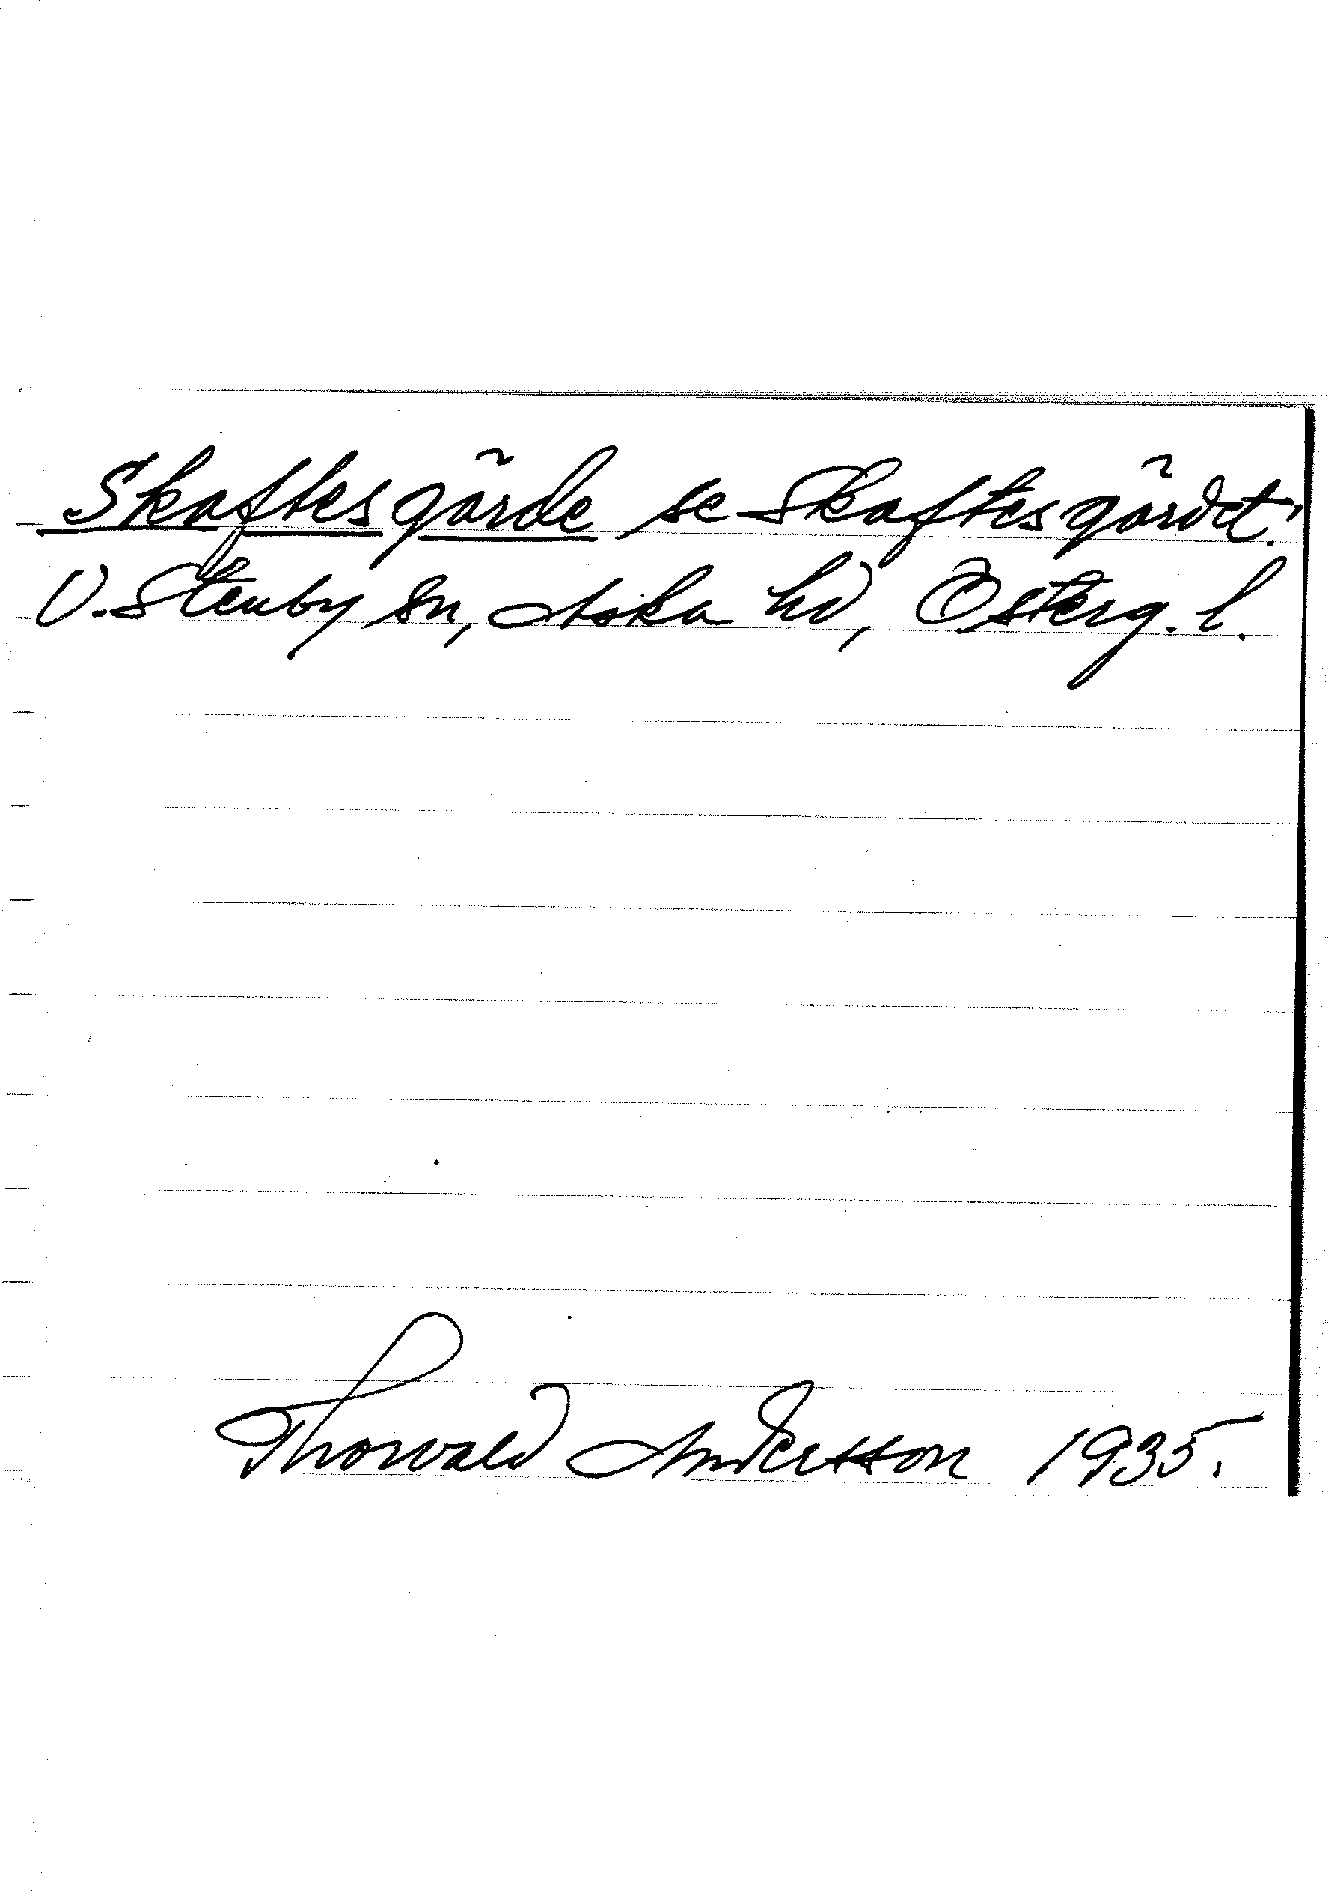 Skaftesgärde se Skaftesgärdet!
V. Stenby sn, Aska hd, Österg. l.
Thorwald Andersson 1935.